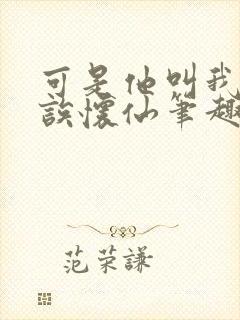 可是他叫我
誒懷仙笔趣
范荣謙